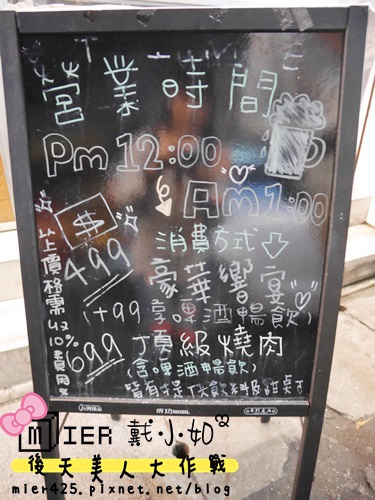 TIME
營業時間
Pm 12:00
Am 1:00
消費方式
$
499 豪華饗宴
(+99享啤酒暢飲)
699 頂級燒肉
(含啤酒暢飲)
皆有提供飲料及甜桌可
以上價格需收10%費用
成功SUCCESS
MIER 戴小如
後天美人大作戰
mier425.pixnet.net/blog